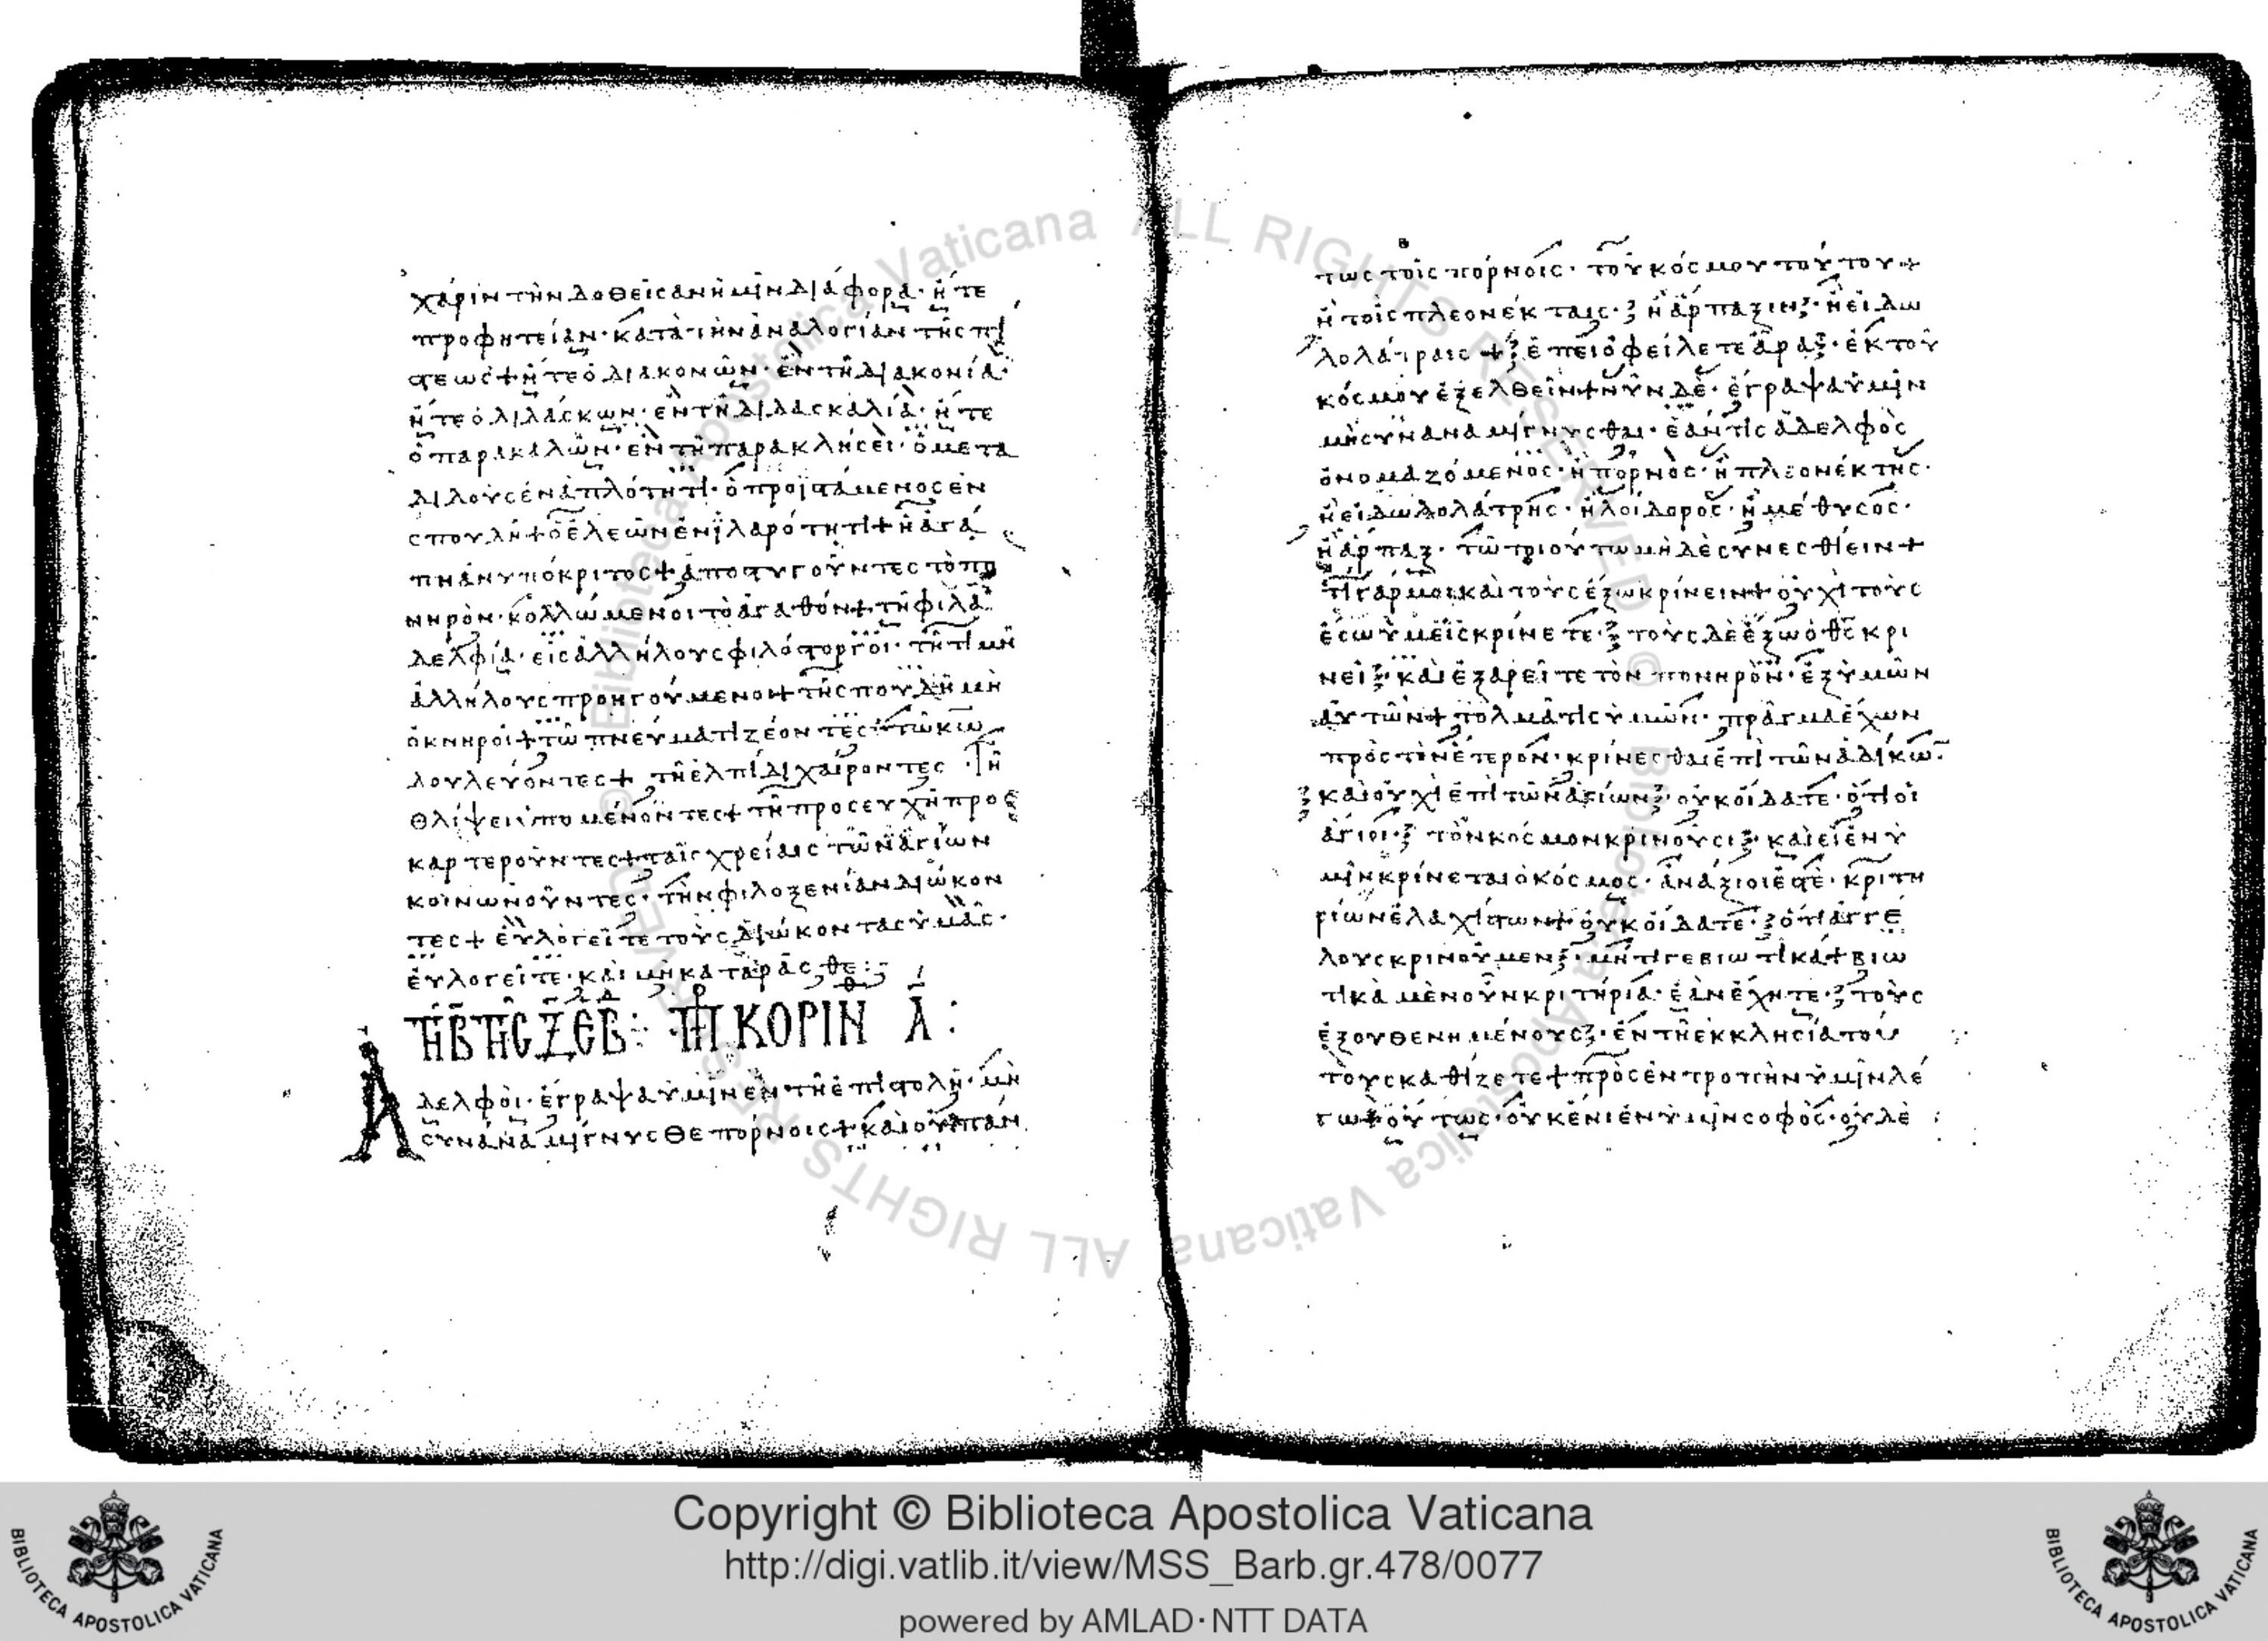 χάριν τὴν δοθεῖσαν ἡμῖν διάφορα· εἴτε
προφητείαν· κατὰ τὴν ἀναλογίαν τῆς πί
στεως + εἴτε ὁ διακονῶν· ἐν τῇ διακονία·
εἴτε ὁ διδάσκων· ἐν τῇ διδασκαλία· εἴτε
ὁ παρακαλῶν· ἐν τῇ παρακλήσει· ὁ μετα
διδοὺς ἐν ἁπλότητι· ὁ προϊστάμενος ἐν
σπουδῇ + ὁ ἐλεῶν ἐν ἱλαρότητι + ἡ ἀγά
πη ἀνυπόκριτος + ἀποστυγοῦντες τὸ πο
νηρὸν· κολλώμενοι τὸ ἀγαθόν + τῇ φιλα
δελφία· εἰς ἀλλήλους φιλόστοργοι· τῇ τιμῇ
ἀλλήλους προηγούμενοι + τῇ σπουδῇ μὴ
ὀκνηροί + τῷ πνεύματι ζέοντες + τῷ κω
δουλεύοντες + τῇ ἐλπίδι χαίροντες · τῇ
θλίψει ὑπομένοντες + τῇ προσευχῇ προς
καρτεροῦντες + ταῖς χρείαις τῶν ἁγίων
κοινωνοῦντες· τὴν φιλοξενίαν διώκον
τες + εὐλογεῖτε τοὺς διώκοντας ὑμᾶς·
εὐλογεῖτε· καὶ μὴ καταρᾶσθε :
ΚΟΡΙΝ Α :
Αδελφοὶ· ἔγραψα ὑμῖν ἐν τῇ ἐπιστολῇ· μὴ
συναναμίγνυσθε πόρνοις + καὶ οὐ πάν
τως τοῖς πόρνοις· τοῦ κόσμου τούτου +
ἢ τοῖς πλεονέκταις· ἢ ἅρπαξιν· ἢ εἰδω
λολάτραις + ἐπεὶ ὀφείλετε ἄρα· ἐκ τοῦ
κόσμου ἐξελθεῖν + νῦν δὲ· ἔγραψα ὑμῖν
μὴ συναναμίγνυσθαι· ἐάν τις ἀδελφὸς
ὀνομαζόμενος· ἢ πόρνος· ἢ πλεονέκτης·
ἢ εἰδωλολάτρης· ἢ λοίδορος· ἢ μέθυσος·
ἢ ἅρπαξ· τῷ τοιούτω μηδὲ συνεσθίειν +
τί γάρ μοι καὶ τοὺς ἔξω κρίνειν + οὐχὶ τοὺς
ἔσω ὑμεῖς κρίνετε· τοὺς δὲ ἔξω ὁ θς κρι
νεῖ· καὶ ἐξαρεῖτε τὸν πονηρὸν· ἐξ ὑμῶν
αὐτῶν + τολμᾶ τὶς ὑμῶν· πρᾶγμα ἔχων
πρὸς τὸν ἕτερον· κρίνεσθαι ἐπὶ τῶν ἀδίκω̅·
καὶ οὐχὶ ἐπὶ τῶν ἁγίων· οὐκ οἴδατε· ὅτι οἱ
ἅγιοι· τὸν κόσμον κρινοῦσι· καὶ εἰ ἐν ὑ
μῖν κρίνεται ὁ κόσμος· ἀνάξιοί ἐστε· κριτη
ρίων ἐλαχίστων + οὐκ οἴδατε· ὅτι ἀγγέ
λους κρινοῦμεν· μήτι γε βιωτικά + βιω
τικὰ μὲν οὖν κριτήρια· ἐὰν ἔχητε· τοὺς
ἐξουθενημένους· ἐν τῇ ἐκκλησία τού
τους καθίζετε + πρὸς ἐντροπὴν ὑμῖν λέ
γω + οὕτως· οὐκ ἔνι ἐν ὑμῖν σοφὸς· οὐδὲ
Copyright © Biblioteca Apostolica Vaticana
http://digi.vatlib.it/view/MSS_Barb.gr.478/0077
powered by AMLAD·NTT DATA
BIBLIOTECA APOSTOLICA VATICANA
BIBLIOTECA APOSTOLICA VATICANA